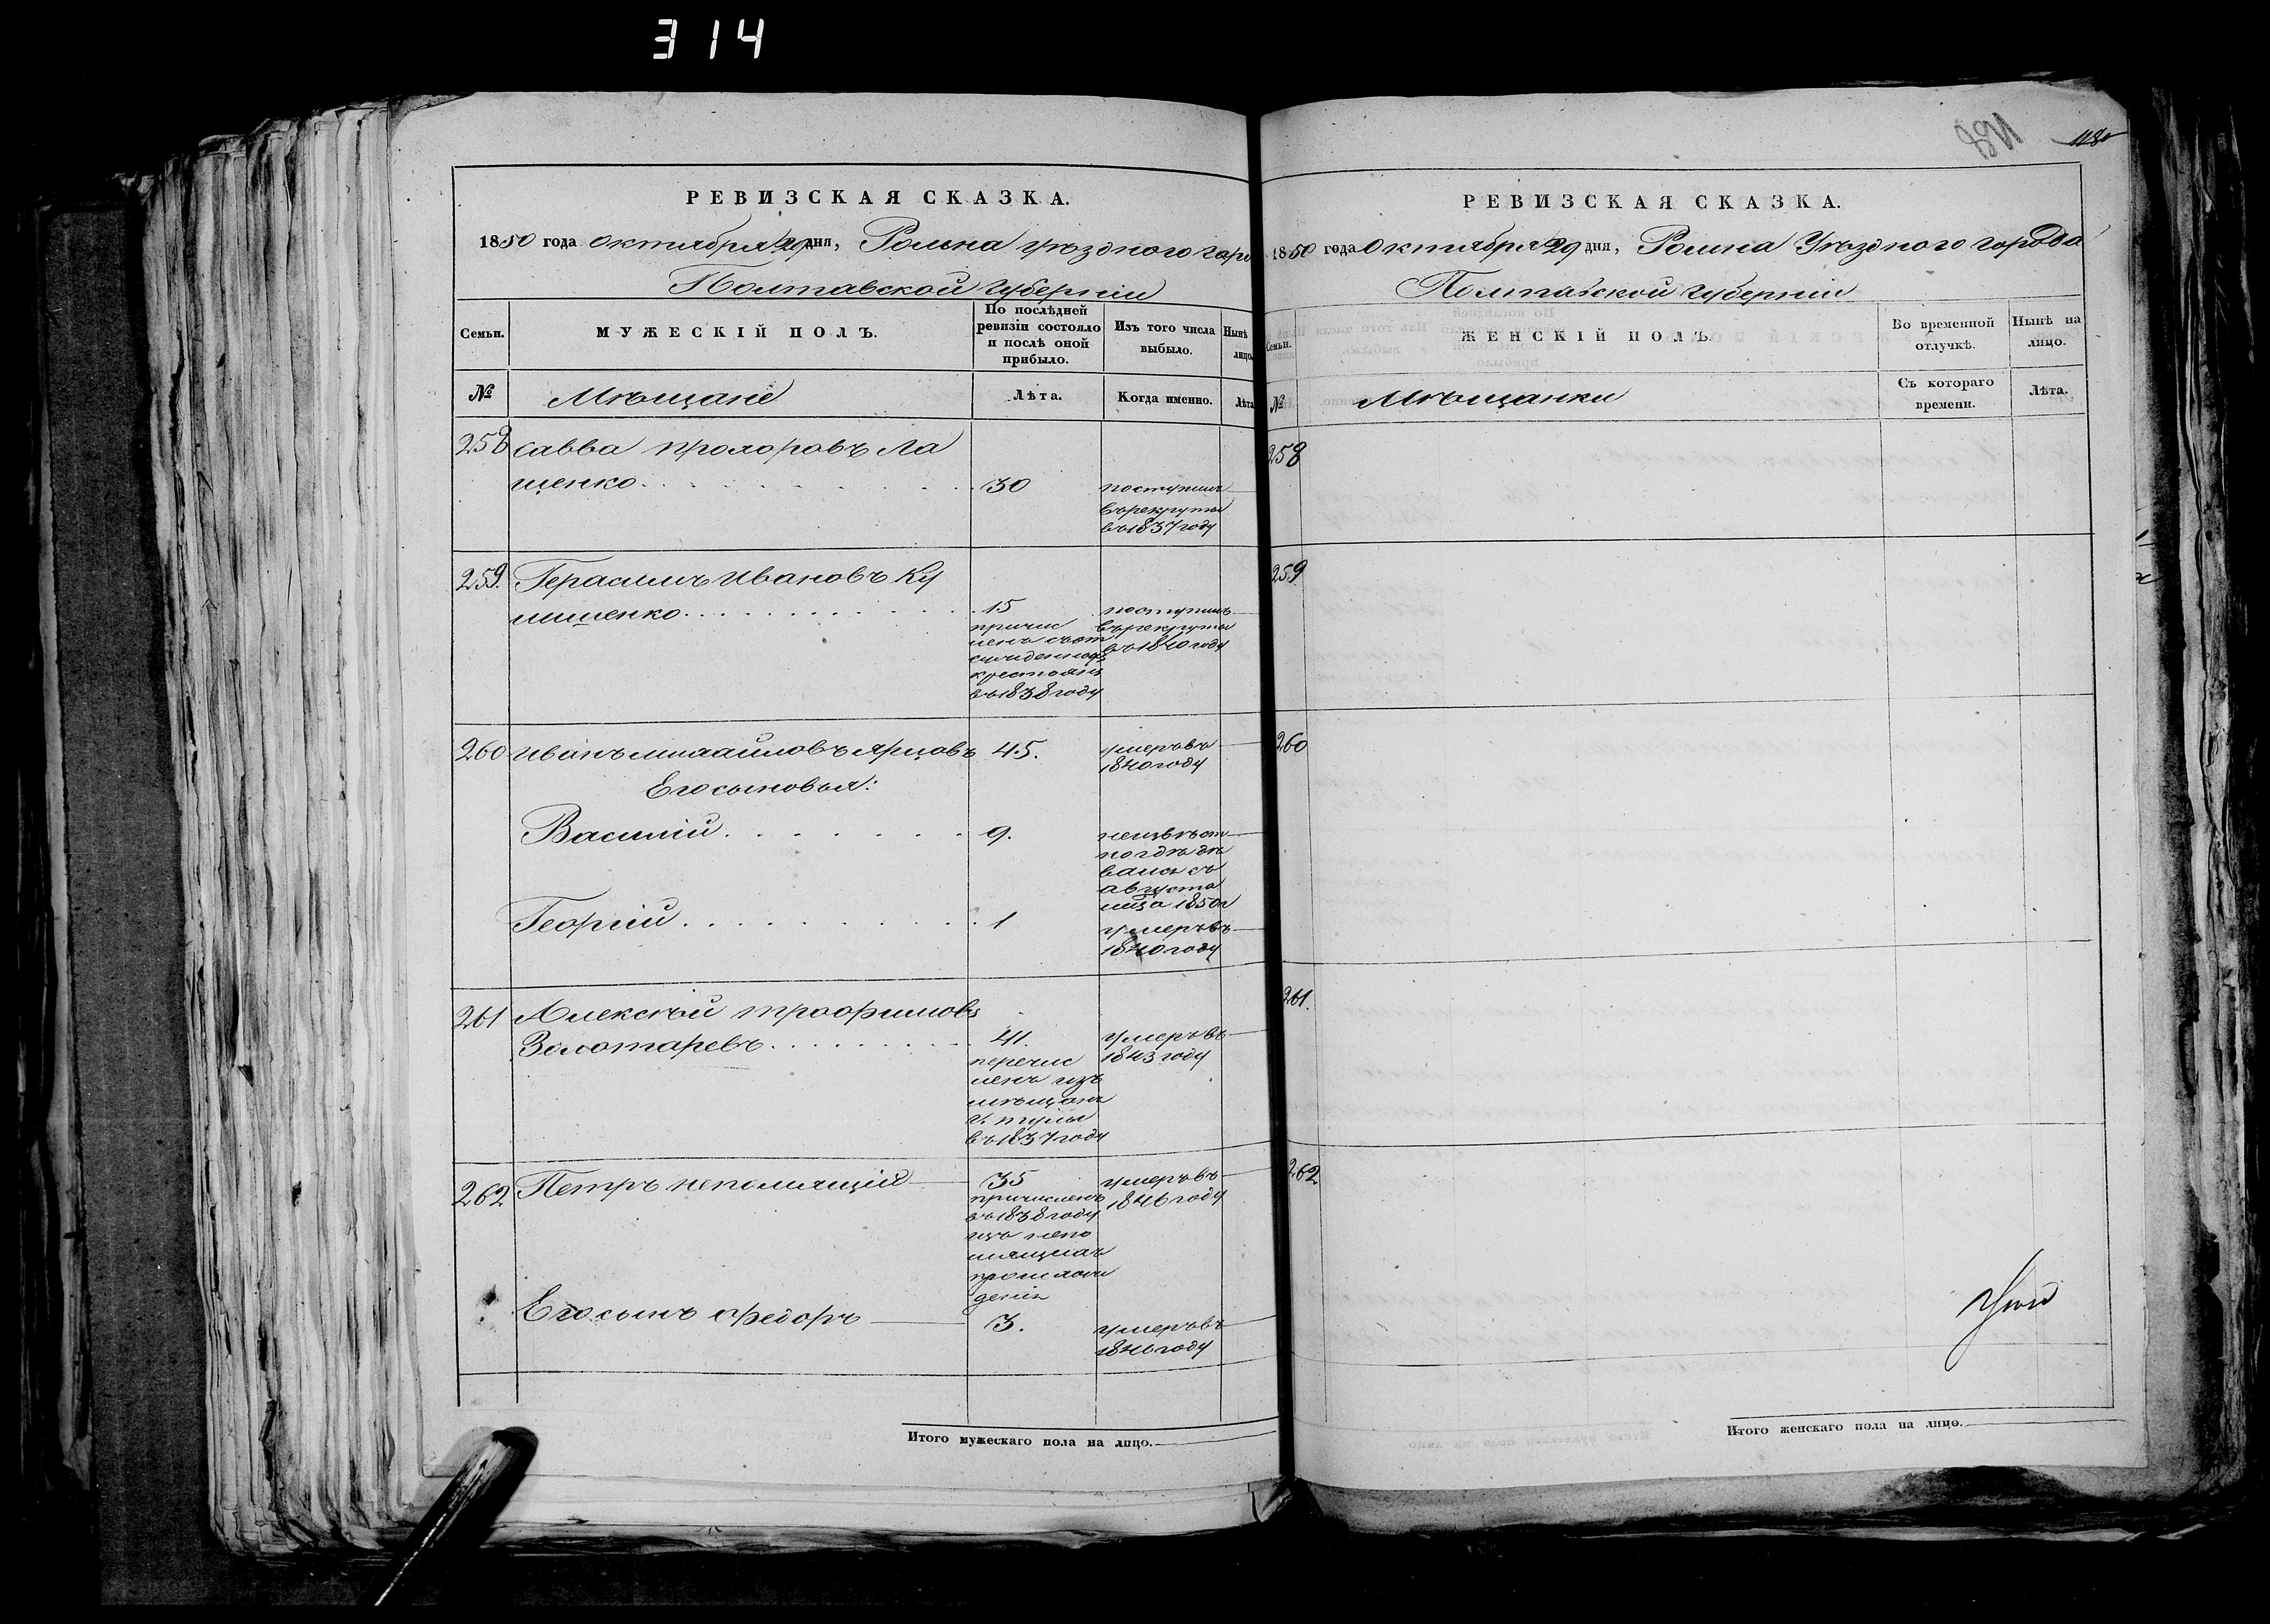 314
РЕВИЗСКАЯ СКАЗКА.
1850 года Октября 29 дня, Ромна уѣзднаго горо
Полтавской Губерніи
Семьи.
МУЖЕСКІЙ ПОЛЪ.
По послѣдней ревизіи состояло и послѣ оной прибыло.
Изъ того числа выбыло.
Нынѣ лицо.
№
Мѣщане
Лѣта.
Когда именно.
Лѣта
258 Савва Прохоровъ Ла
щенко
30
поступилъ
въ рекруты
въ 1837 году
259. Герасимъ Ивановъ Ку
15
поступилъ
въ рекруты
въ 1840 году
причис
ленъ
въ 1838 году
260 Иванъ Михайловъ Ярцовъ 45.
умеръ въ
1840 году
Его сыновья:
Василій
9.
неизвѣст
но гдѣ дѣ
вался съ
августа
мца 1850 г
Георгій
1
умеръ въ
1840 году
261 Алексѣй Трофимовъ
Золотаревъ
41.
умеръ въ
1843 году
перечис
ленъ изъ
мѣщанъ
г. Тулы
въ 1837 году
262 Петръ непомнящій
35
умеръ въ
1846 году
причисленъ
въ 1838 году
изъ непо
мнящихъ
происхож
денія
Его сынъ Федоръ
3.
умеръ въ
1846 году
Итого мужескаго пола на лицо.
118
РЕВИЗСКАЯ СКАЗКА.
1850 года Октября 29 дня, Ромна Уѣзднаго города
Полтавской Губерніи
Семьи.
ЖЕНСКІЙ ПОЛЪ.
Во временной отлучкѣ.
Нынѣ на лицо.
№
Мѣщанки
Съ котораго времени.
Лѣта.
258
259
260
261.
262
Итого женскаго пола на лицо.